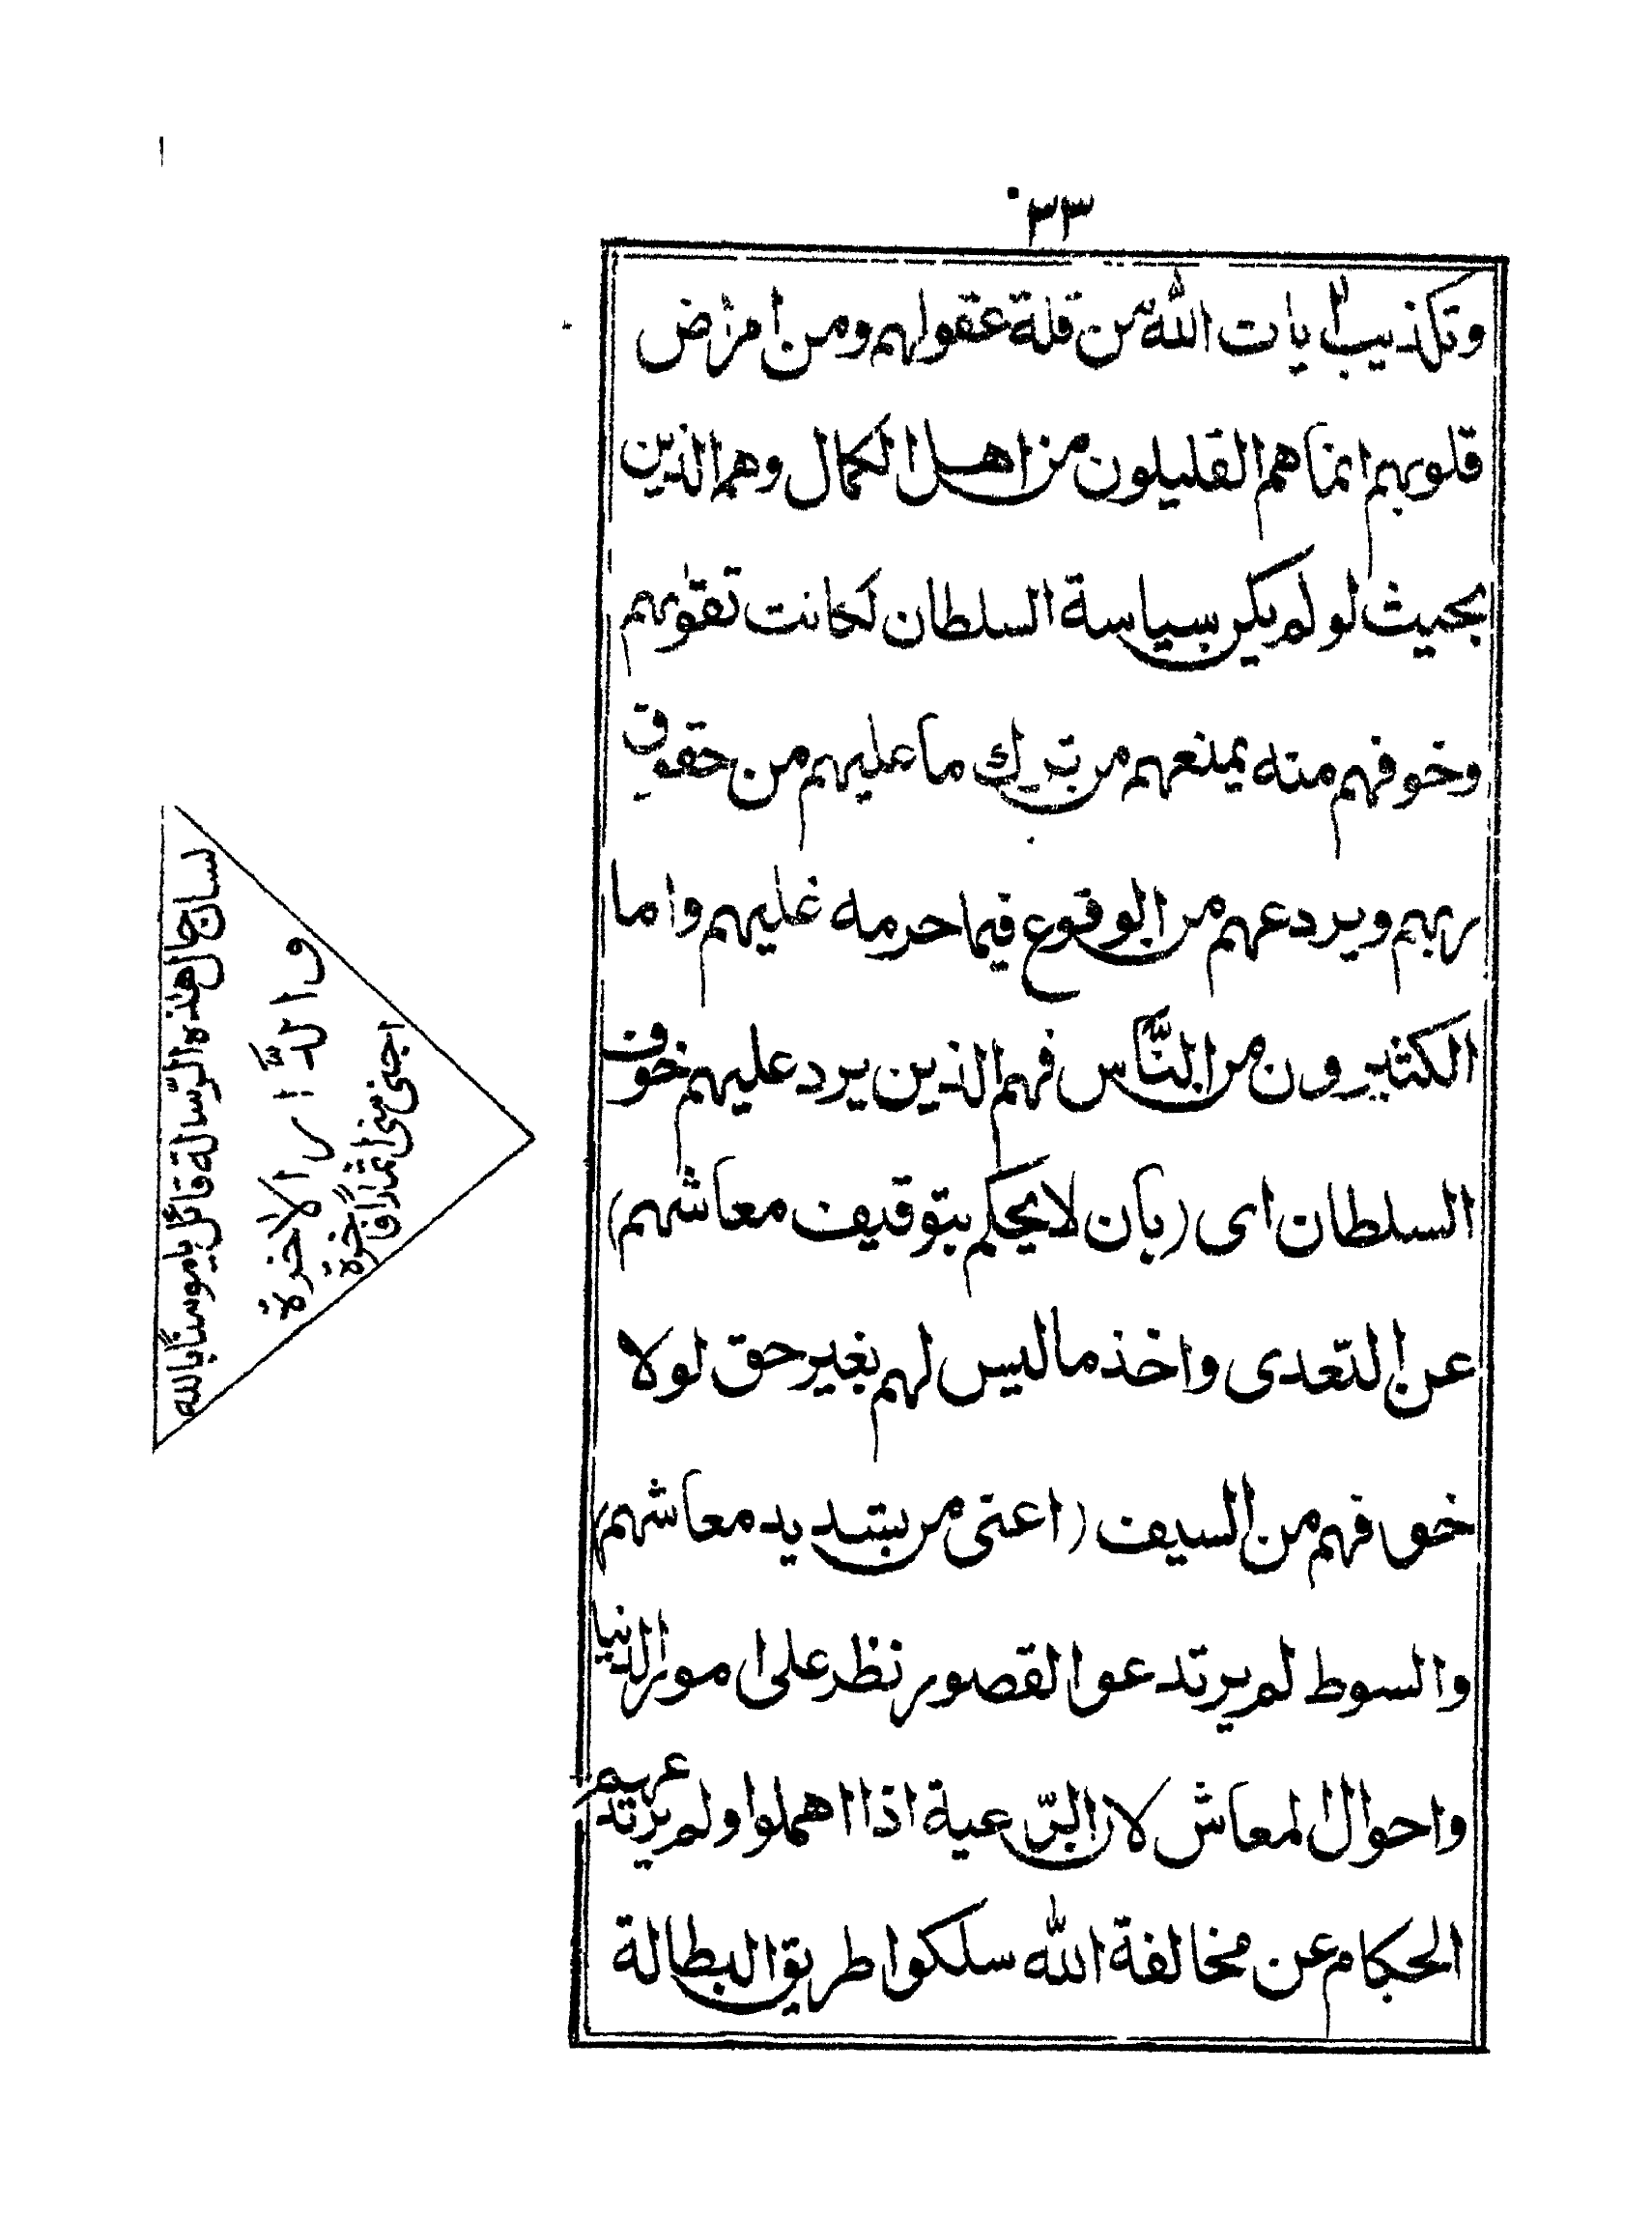 ٣٣٠
وتكذيب اٰيات الله من قلة عقولهم ومن امراض
قلوبهم انما هم القليلون من اهل الكمال وهم الذين
بحيث لو لم يكن سياسة السلطان لكانت تقوٰيهم
وخوفهم منه يمنعهم من ترك ما عليهم من حقوق
ربهم ويردعهم من الوقوع فيما حرمه عليهم واما
الكثيرون من النَّاس فهم الذين يرد عليهم خوف
السلطان اى (بان لا يحكم بتوقيف معاشهم)
عن التّعدى واخذ ما ليس لهم بغير حق لولا
خوفهم من السيف (اعنى من بتديد معاشهم)
والسوط لم يرتدعوا لقصور نظر على امور الدنيا
واحوال المعاش لان الرّعية اذا اهملوا ولم يرتدعهم
الحكام عن مخالفة الله سلكوا طريق البطالة
لسان حال هٰذه الرّسالة قائل يا موسنًا بالله
و الدَّار الاخرة
اجنى منى اثمارًا فاخرة